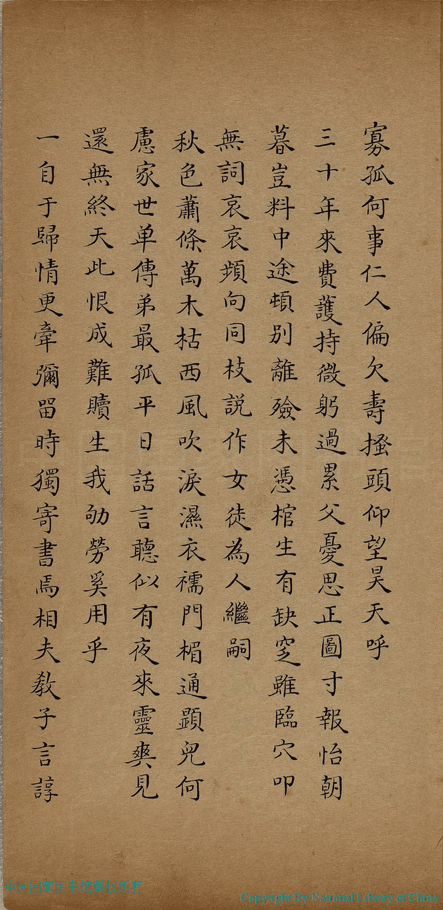 寡孤何事仁人偏欠壽搔頭仰望昊天呼
三十年來費護持微躬過累父憂思正圖寸報怡朝
暮豈料中途頓別離殮未憑棺生有缺窆雖臨穴叩
無詞哀哀頻向同枝説作女徒為人繼嗣
秋色蕭條萬木枯西風吹淚濕衣襦門楣通顯兒何
慮家世单傳弟最孤平日話言聽似有夜來靈爽見
還無終天此恨成難贖生我劬勞奚用乎
一自于歸情更牽彌留時獨寄書焉相夫教子言諄
Copyright by National Library of China